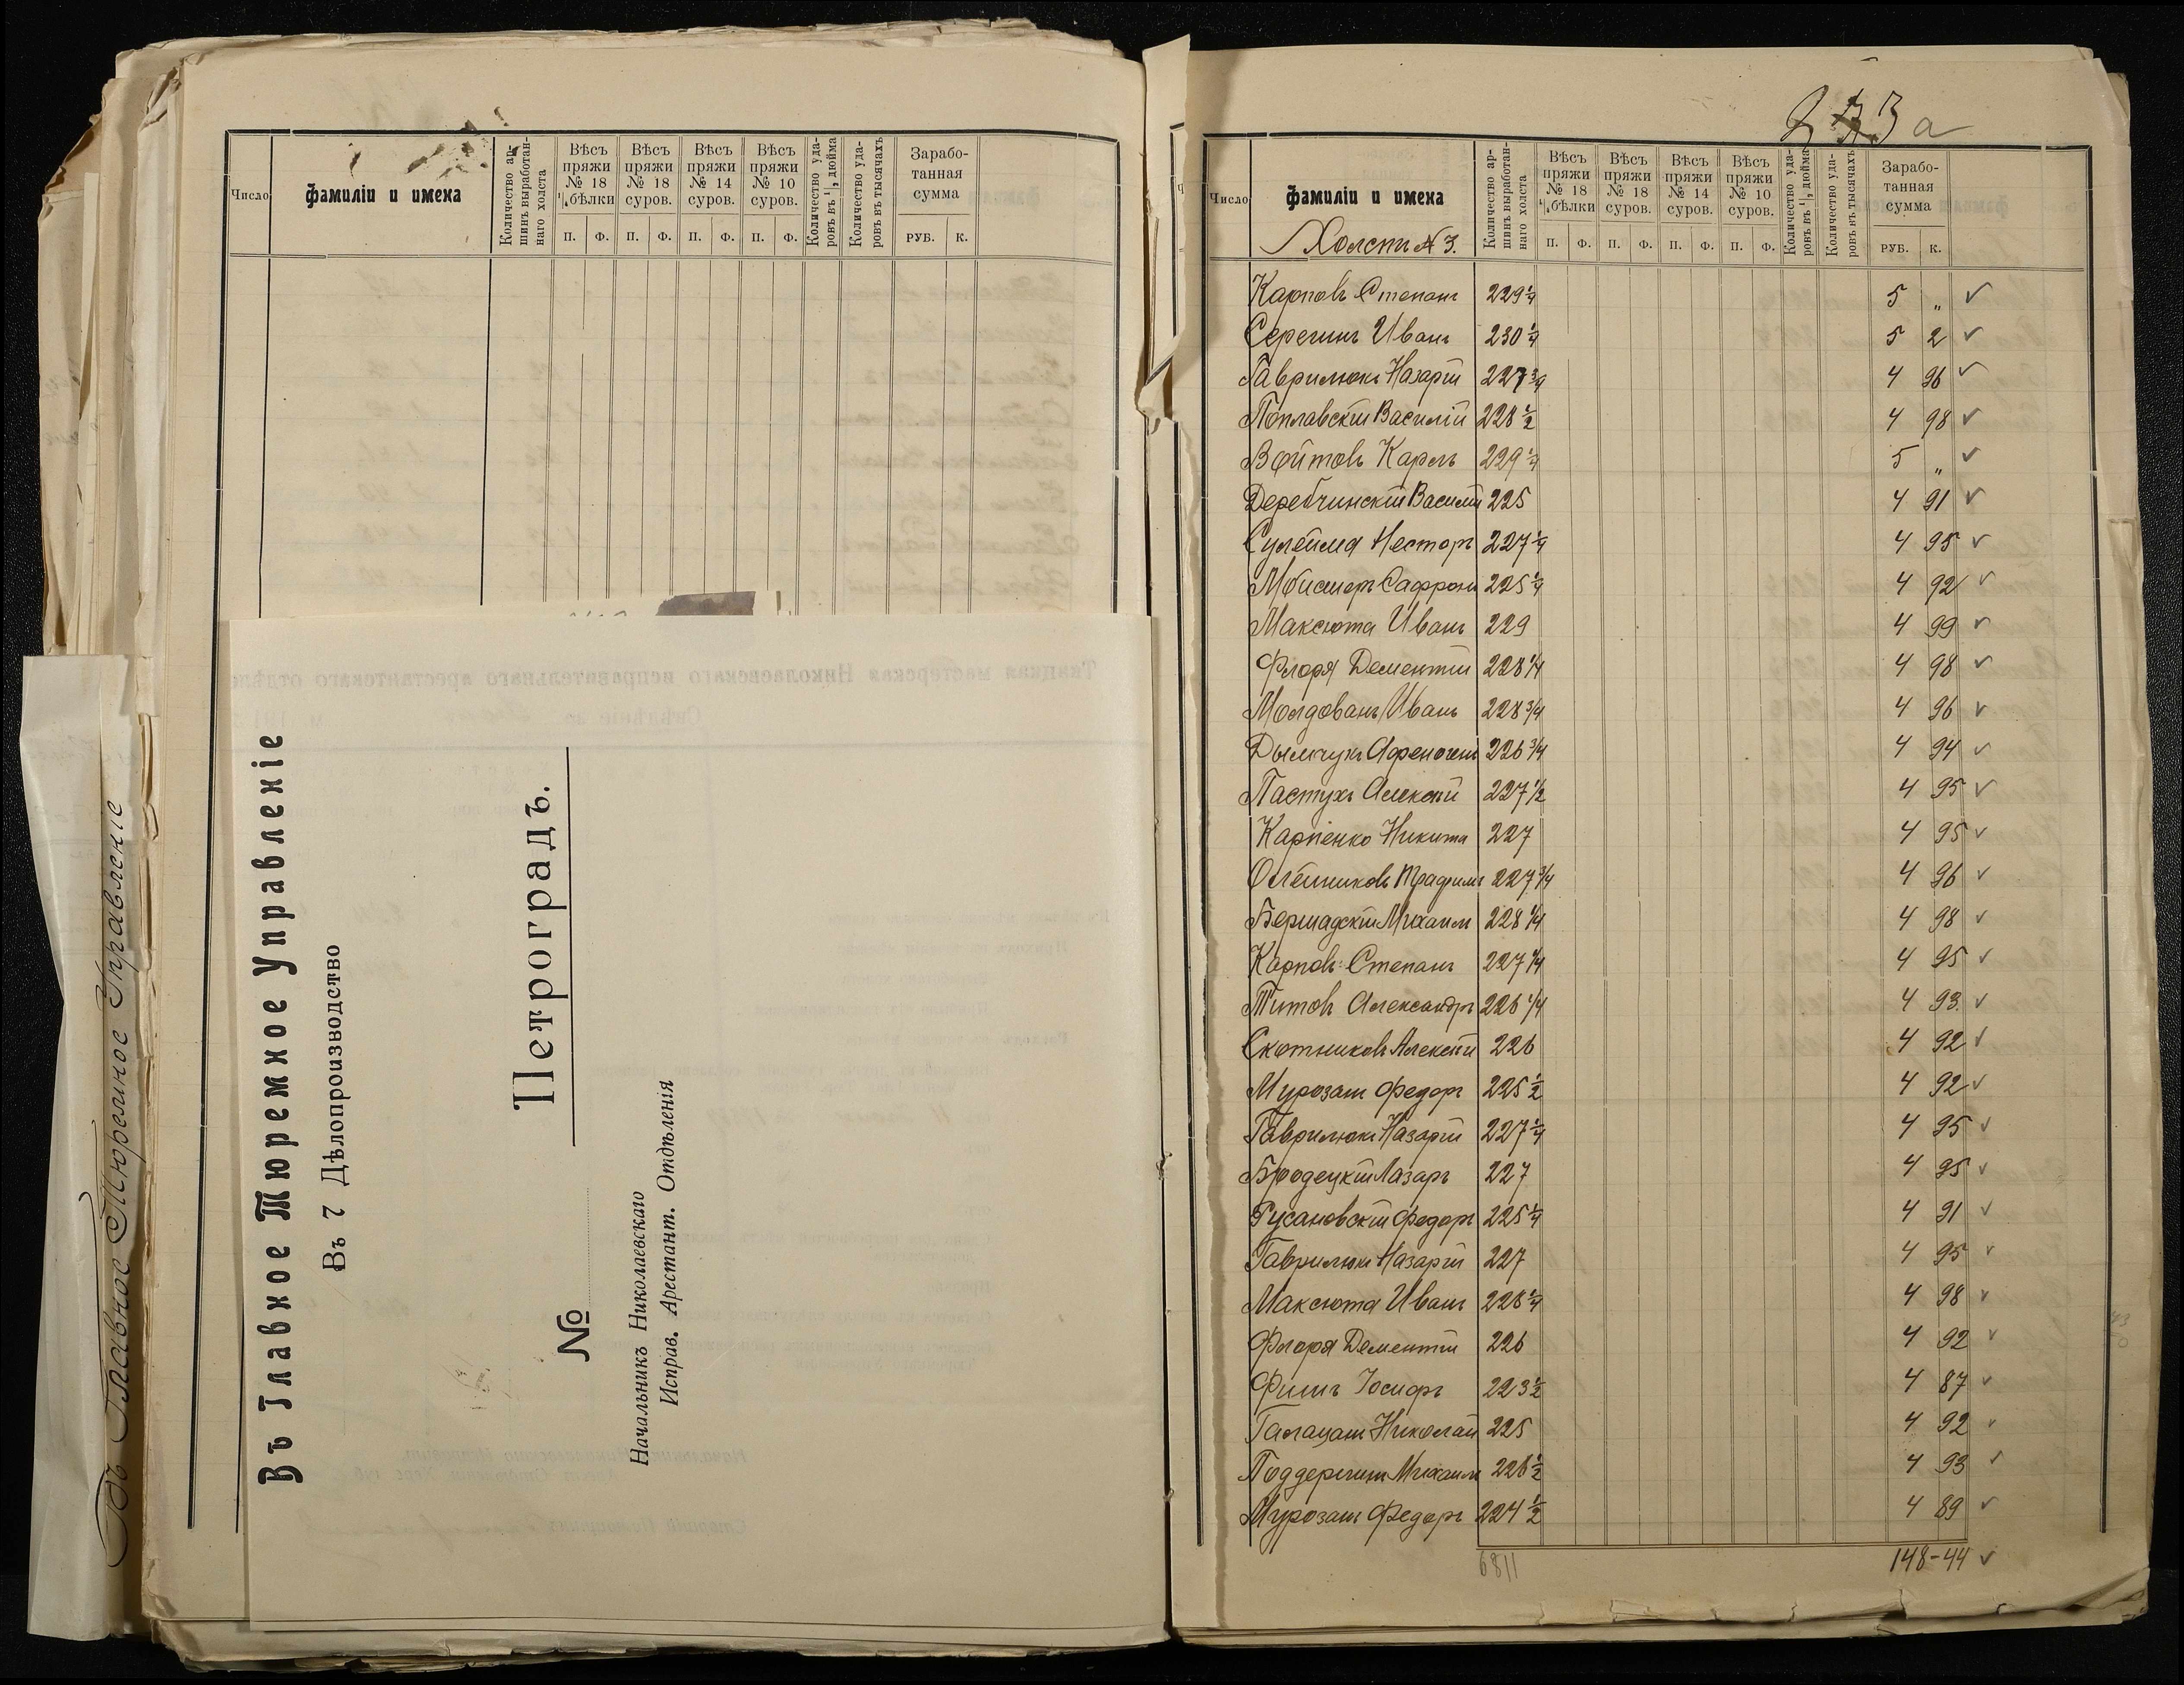 Число
Фамиліи и имена
Количество аршинъ выработаннаго холста
Вѣсъ пряжи № 18 ½ бѣлки
Вѣсъ пряжи № 18 суров.
Вѣсъ пряжи № 14 суров.
Вѣсъ пряжи № 10 суров.
П. Ф. П. Ф. П. Ф. П. Ф.
Количество ударовъ въ ¼ дюйма
Количество ударовъ въ тысячахъ
Заработанная сумма
РУБ. К.
Въ Главное Тюремное Управленіе
Въ Главное Тюремное Управленіе
Въ 7 Дѣлопроизводство
Петроградъ.
№
Начальникъ Николаевскаго
Исправ. Арестант. Отдѣленія
а
Число
Фамиліи и имена
Холстъ № 3.
Количество аршинъ выработаннаго холста
Вѣсъ пряжи № 18 ½ бѣлки
Вѣсъ пряжи № 18 суров.
Вѣсъ пряжи № 14 суров.
Вѣсъ пряжи № 10 суров.
П. Ф. П. Ф. П. Ф. П. Ф.
Количество ударовъ въ ¼ дюйма
Количество ударовъ въ тысячахъ
Заработанная сумма
РУБ. К.
Карповъ Степанъ 229¼ 5 „ ✓
Серегинъ Иванъ 230¼ 5 2 ✓
Гаврилюкъ Назарій 227¾ 4 96 ✓
Поплавскій Василій 228½ 4 98 ✓
Войтовъ Карлъ 229¼ 5 „ ✓
Деребчинскій Василій 225 4 91 ✓
Сулейма Несторъ 227¼ 4 95 ✓
Сафронъ 225¼ 4 92 ✓
Максюта Иванъ 229 4 99 ✓
Флоря Дементій 228¼ 4 98 ✓
Молдованъ Иванъ 228¾ 4 96 ✓
226¾ 4 94 ✓
Пастухъ Алексѣй 227½ 4 95 ✓
Карпенко Никита 227 4 95 ✓
Олейниковъ Трафимъ 227¾ 4 96 ✓
Бершадскій Михаилъ 228¼ 4 98 ✓
Карповъ Степанъ 227¼ 4 95 ✓
Титовъ Александръ 226¼ 4 93. ✓
Скотниковъ Алексѣй 226 4 92 ✓
Мурозанъ Федоръ 225½ 4 92 ✓
Гаврилюкъ Назарій 227¼ 4 95 ✓
Бродецкій Лазарь 227 4 95 ✓
Русановскій Федоръ 225¼ 4 91 ✓
Гаврилюкъ Назарій 227 4 95 ✓
Максюта Иванъ 228¼ 4 98 ✓
Флоря Дементій 226 4 92 ✓
Іосифъ 223½ 4 87 ✓
Галацанъ Николай 225 4 92 ✓
Михаилъ 226½ 4 93 ✓
Мурозанъ Федоръ 224½ 4 89 ✓
6811 148-44 ✓